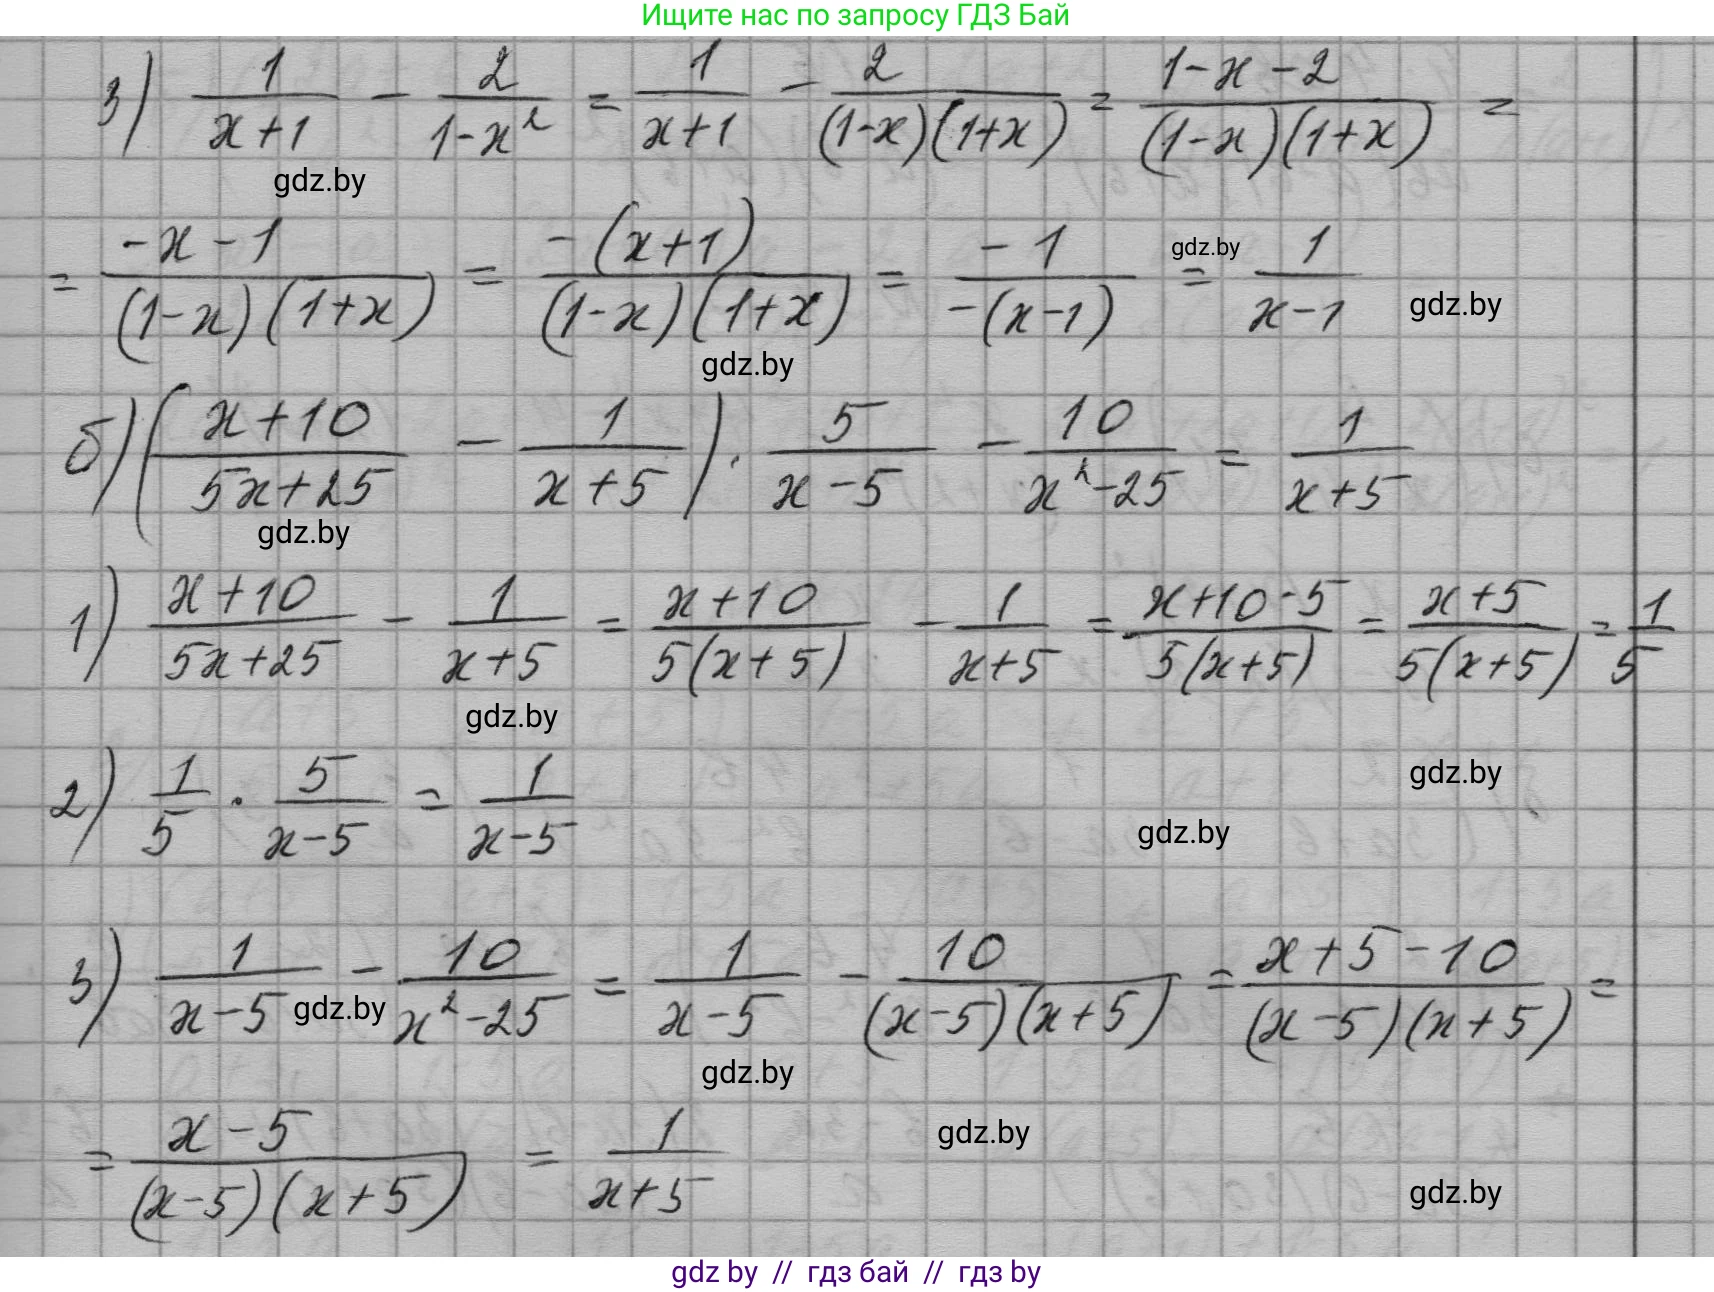 Ищите нас по запросу ГДЗ Бай
3) 1/(x+1) - 2/(1-x²) = 1/(x+1) - 2/((1-x)(1+x)) = (1-x-2)/((1-x)(1+x)) =
gdz.by
= (-x-1)/((1-x)(1+x)) = (-(x+1))/((1-x)(1+x)) = (-1)/(-(x-1)) = 1/(x-1)
gdz.by
gdz.by
gdz.by
б) ((x+10)/(5x+25) - 1/(x+5)) · 5/(x-5) - 10/(x²-25) = 1/(x+5)
gdz.by
1) (x+10)/(5x+25) - 1/(x+5) = (x+10)/(5(x+5)) - 1/(x+5) = (x+10-5)/(5(x+5)) = (x+5)/(5(x+5)) = 1/5
gdz.by
gdz.by
2) 1/5 · 5/(x-5) = 1/(x-5)
gdz.by
3) 1/(x-5) - 10/(x²-25) = 1/(x-5) - 10/((x-5)(x+5)) = (x+5-10)/((x-5)(x+5)) =
gdz.by
gdz.by
= (x-5)/((x-5)(x+5)) = 1/(x+5)
gdz.by
gdz.by
gdz by // гдз бай // гдз by